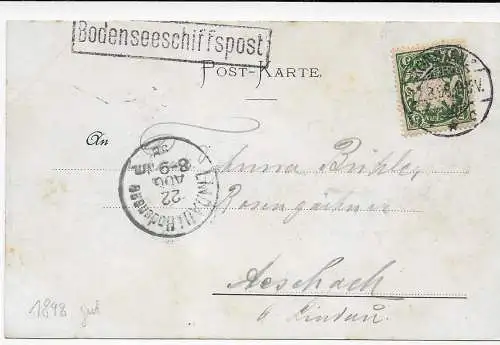 Bodenseeschiffspost
POST-KARTE.
An
LINDAU i. Bodensee
22
AUG
8-9
Anna Bühler
Rosengärtner
Aeschach
b Lindau.
1898 gut